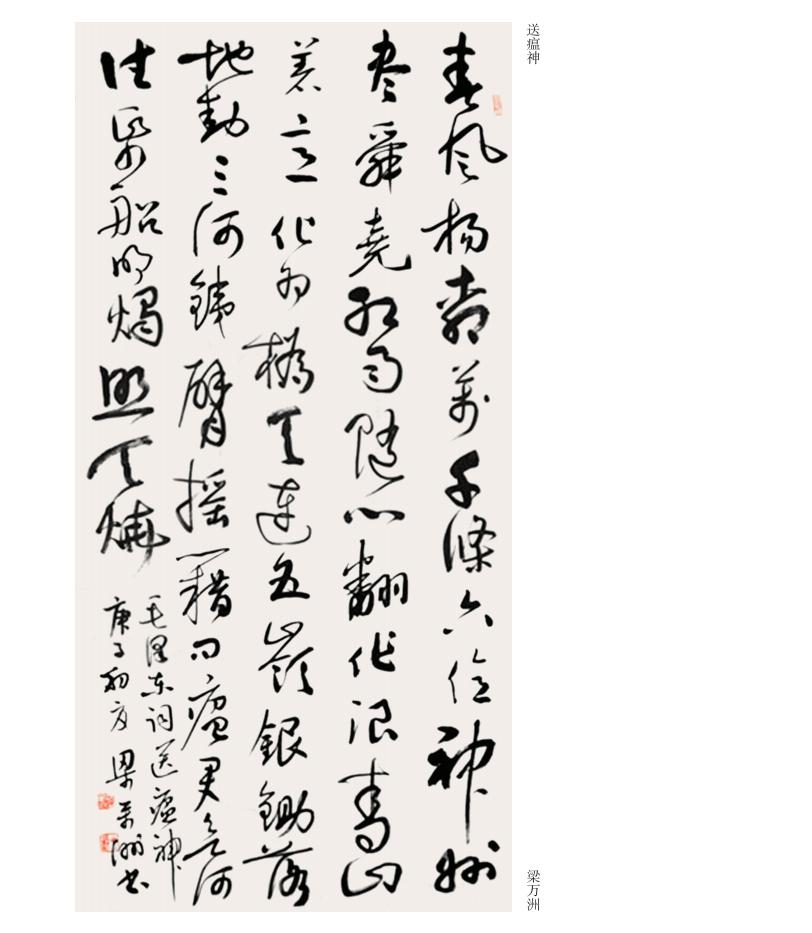 送瘟神
春风杨柳萬千條六億神州
尽舜堯红雨随心翻作浪青山
着意化为橋天连五嶺銀鋤落
地動三河銕臂摇藉问瘟君欲何
往纸船明燭照天燒
毛泽东词送瘟神
庚子初夏梁万洲书
梁万洲